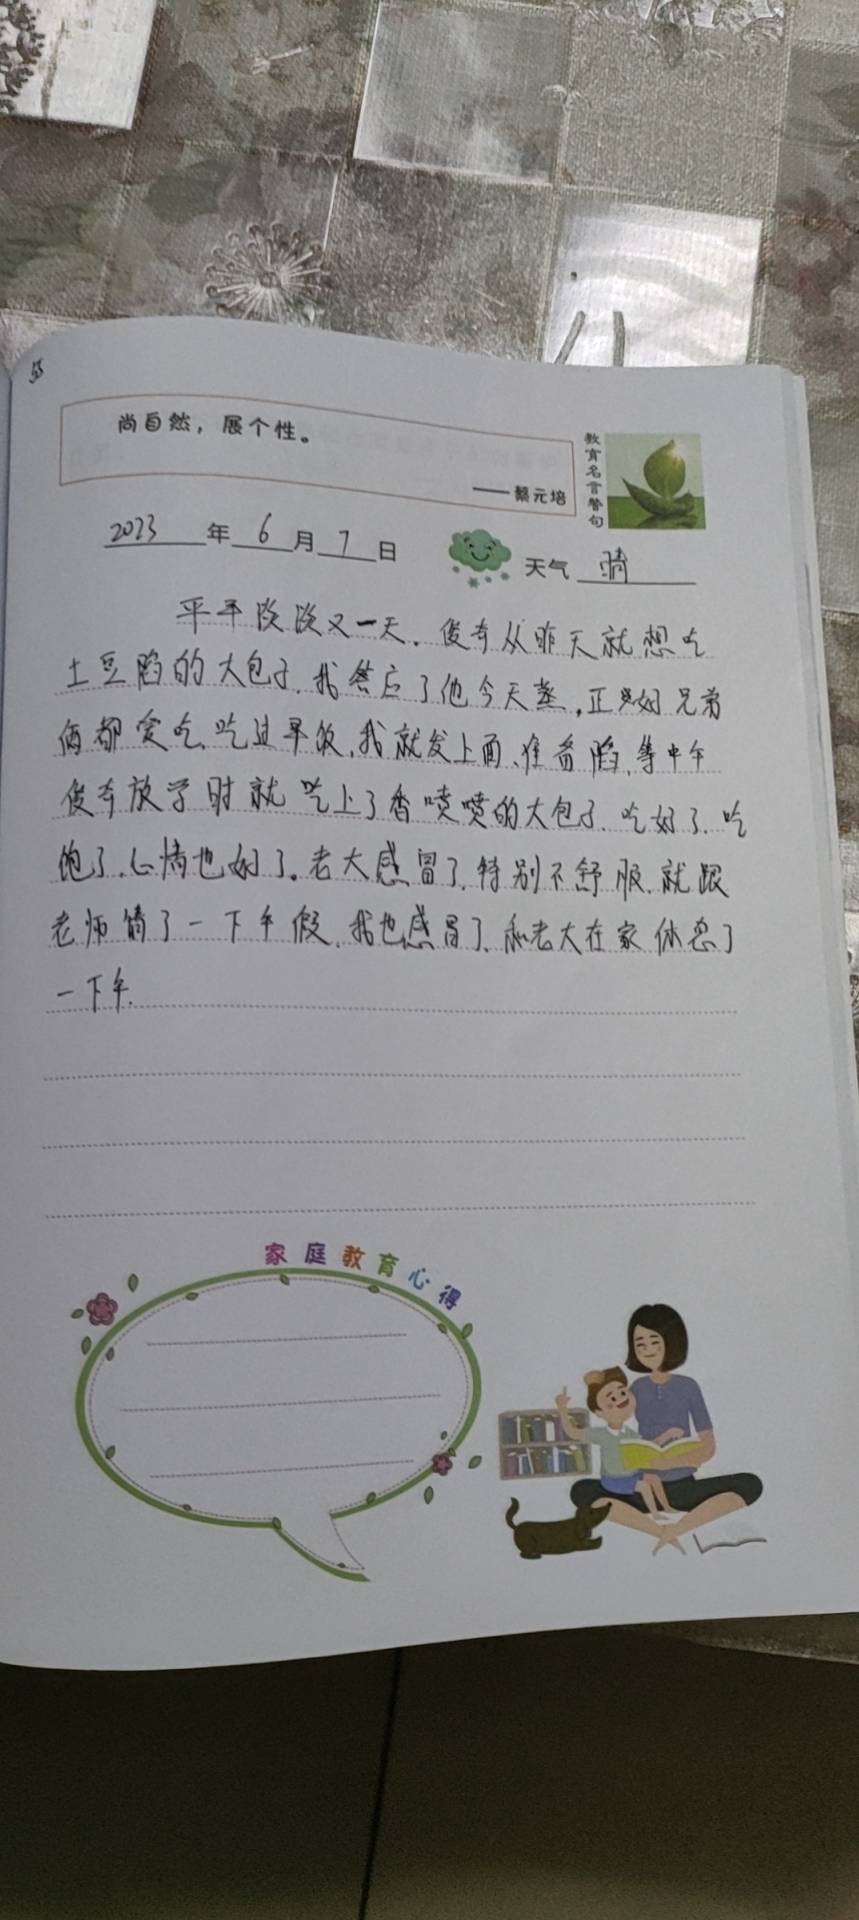 55
尚自然，展个性。
—— 蔡元培
教育名言警句
2023年6月7日
天气 晴
平平淡淡又一天。俊奇从昨天就想吃
土豆馅的大包子，我答应了他今天蒸，正好兄弟
俩都爱吃，吃过早饭，我就发上面、准备馅，等中午
俊奇放学时就吃上了香喷喷的大包子，吃好了，吃
饱了，心情也好了。老大感冒了，特别不舒服，就跟
老师请了一下午假，我也感冒了，和老大在家休息了
一下午。
家庭教育心得